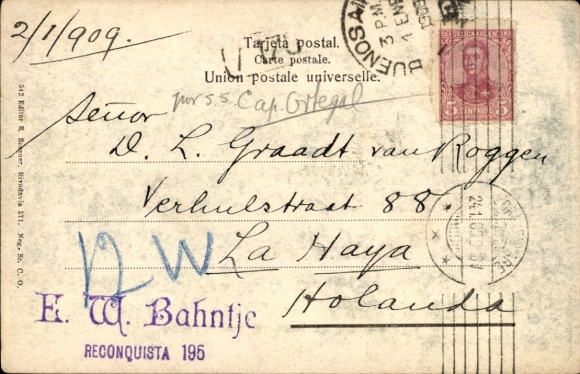 2/1/1909.
Tarjeta postal.
Carte postale.
Union postale universelle.
BUENOS AI
3 P.M.
1 ENE
REPUBLICA ARGENTINA
5 CENTAVOS 5
por s.s. Cap. Ortegal
Señor
D. L. Graadt van Roggen
Verhulstraat 88.
La Haya
Holanda
24.1.09
E. W. Bahntje
RECONQUISTA 195
542 Editor R. Rosauer, Rivadavia 571. Neg. Sr. C. O.